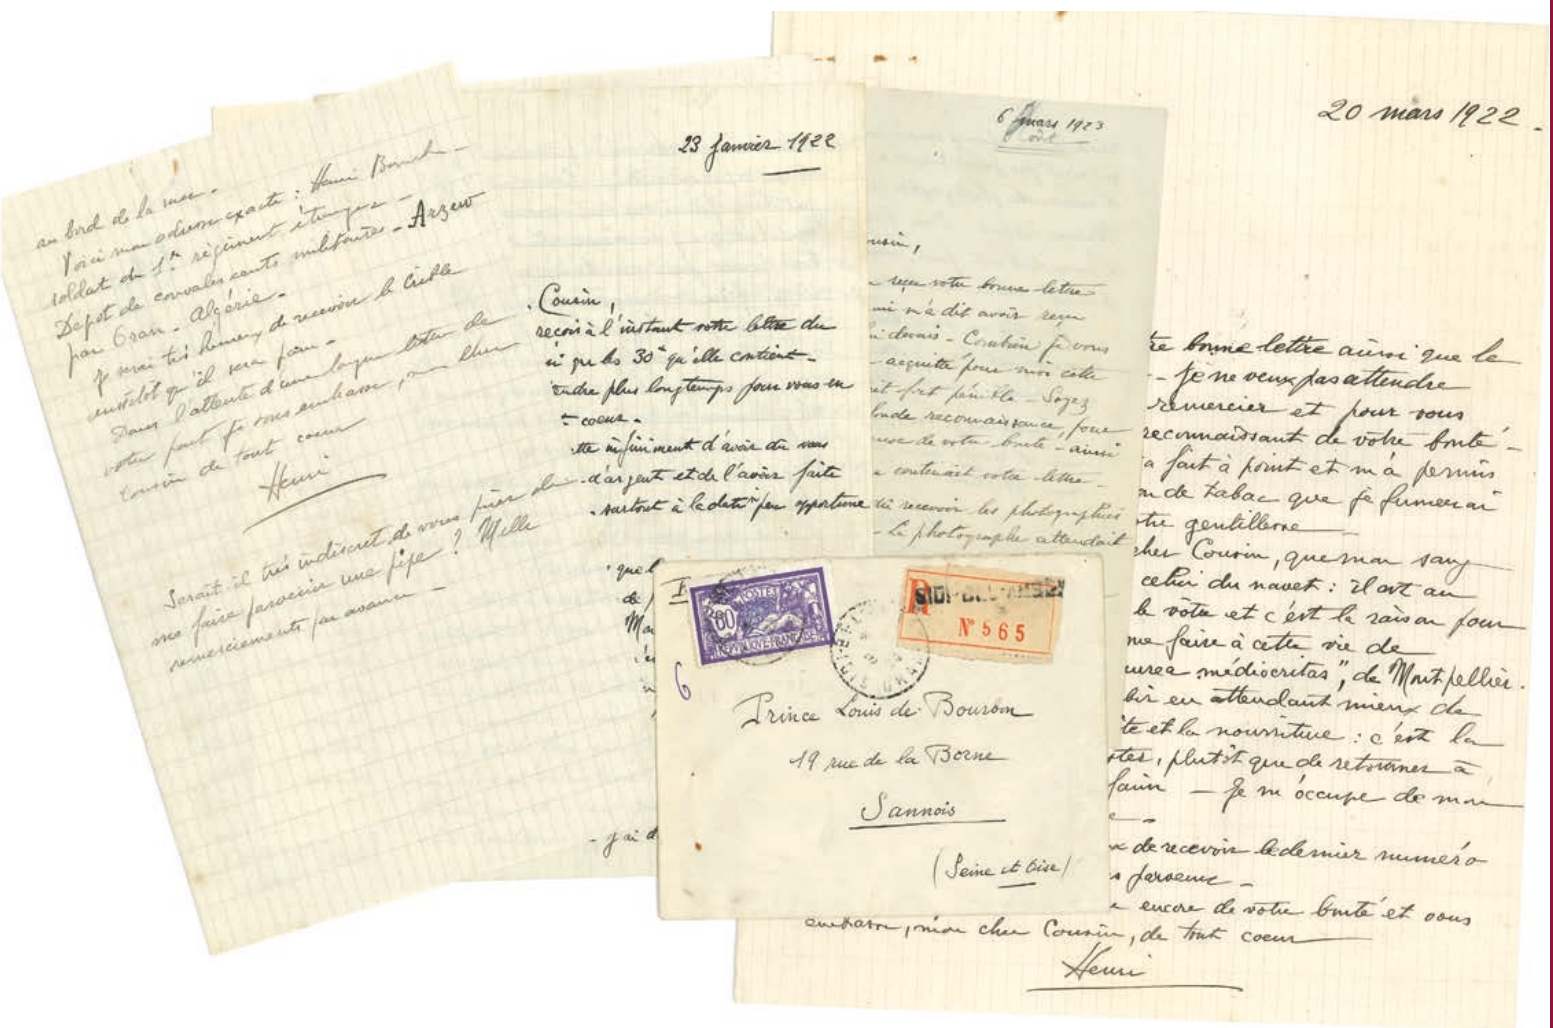 au bord de la mer.
Voici mon adresse exacte : Henri
soldat du 1er régiment étranger -
Depot de convalescents militaires - Arzew
par Oran - Algérie -
Je serai très heureux de recevoir le Crible
aussitôt qu'il sera paru -
Dans l'attente d'une longue lettre de
votre part je vous embrasse, mon cher
Cousin de tout coeur
Henri
Serait-il très indiscret de vous prier de
me faire parvenir une pipe ? Mille
remerciements par avance -
23 Janvier 1922
Cousin,
reçois à l'instant votre lettre du
si que les 30 qu'elle contient -
endre plus longtemps pour vous en
coeur -
tte infiniment d'avoir du vous
d'argent et de l'avoir faite
surtout à la date peu opportune
que l
de
- j'ai d
6 mars 1923
Cousin,
reçu votre bonne lettre
m'a dit avoir reçu
devais - Combien je vous
acquitté pour moi cette
it fort pénible - Soyez
onde reconnaissance, pour
de votre bonté - ainsi
contenait votre lettre -
recevoir les photographies
- Le photographe attendait
20 mars 1922 -
tre bonne lettre ainsi que le
- Je ne veux pas attendre
remercier et pour vous
reconnaissant de votre bonté -
a fait à point et m'a permis
de tabac que je fumerai
tre gentillesse -
cher Cousin, que mon sang
celui du navet : il est au
le vôtre et c'est la raison pour
me faire à cette vie de
aurea médiocritas", de Montpellier.
bir en attendant mieux de
te et la nourriture : c'est la
stes, plutôt que de retourner à
faim - Je m'occupe de mon
de recevoir le dernier numéro
parvenu -
encore de votre bonté et vous
embrasse, mon cher Cousin, de tout coeur
Henri
POSTES
60
REPUBLIQUE FRANÇAISE
R
SIDI-BEL-ABBES
N° 565
6
Prince Louis de Bourbon
19 rue de la Borne
Sannois
(Seine et Oise)